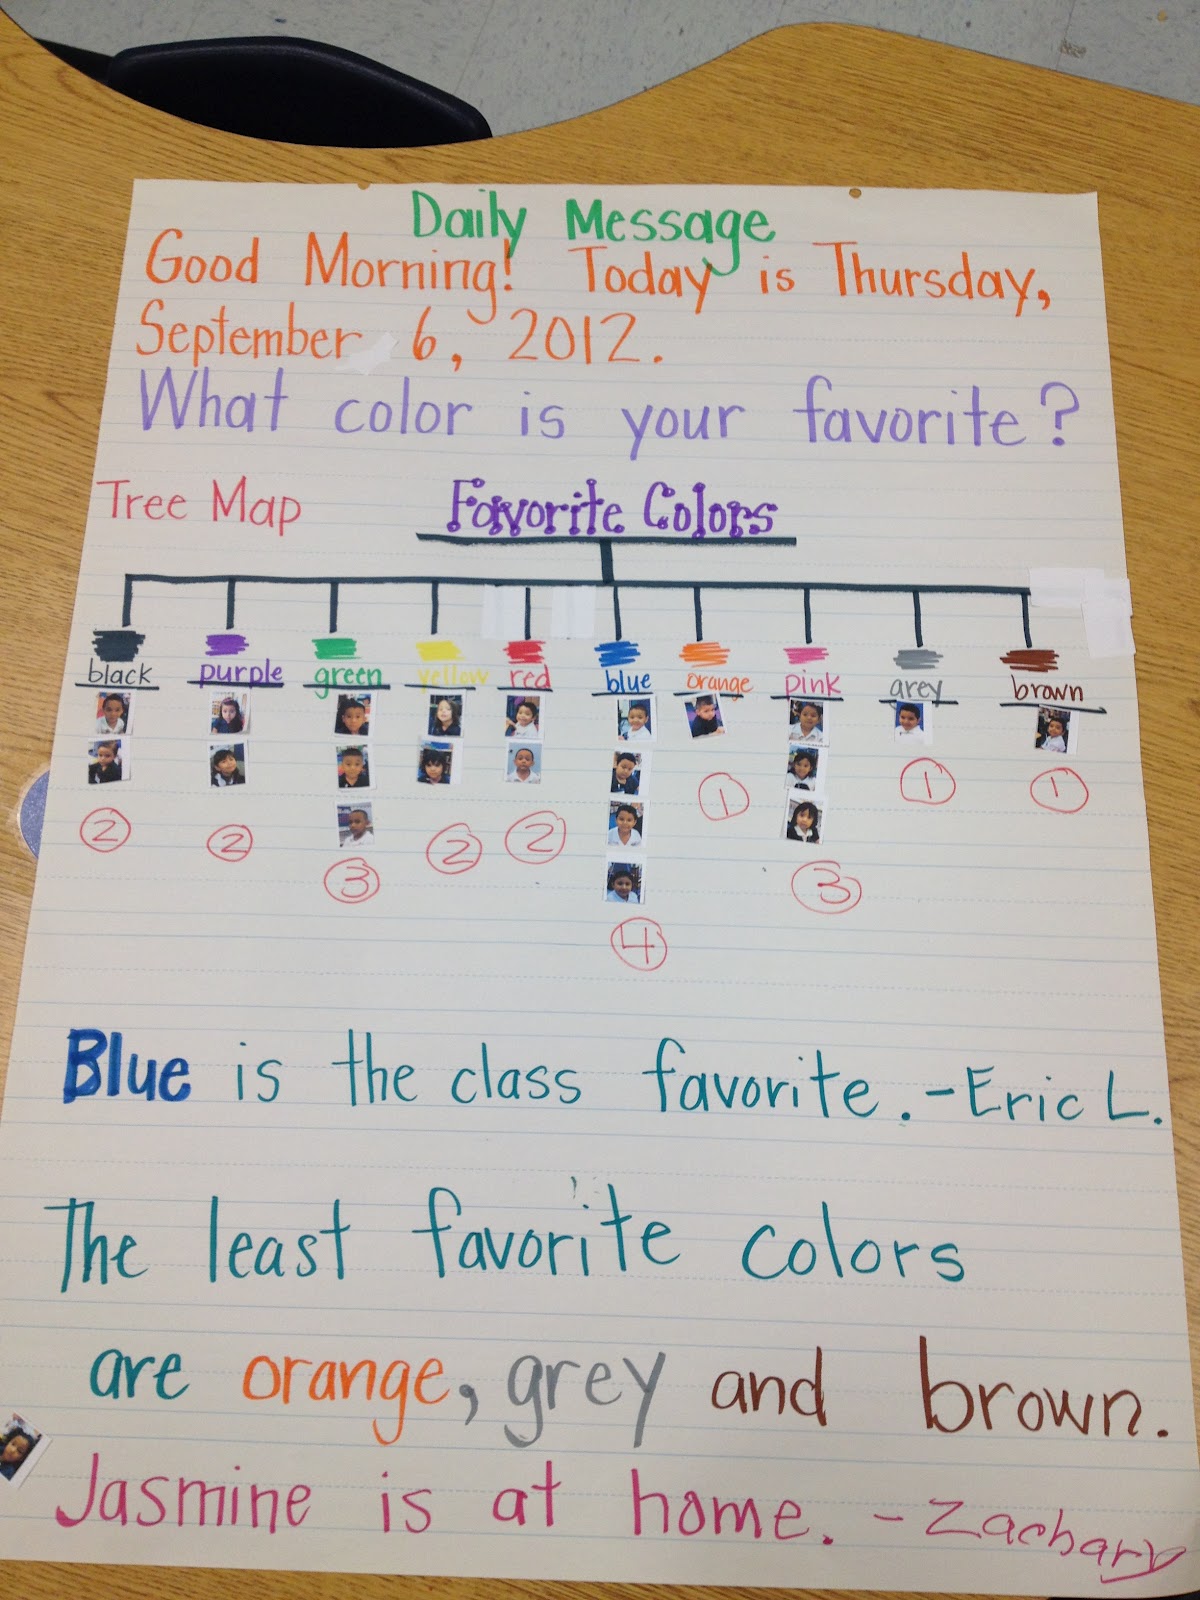 Daily Message
Good Morning! Today is Thursday,
September 6, 2012.
What color is your favorite?
Tree Map
Favorite Colors
black purple green yellow red blue orange pink grey brown
2 2 3 2 2 4 1 3 1 1
Blue is the class favorite. - Eric L.
The least favorite colors
are orange, grey and brown.
Jasmine is at home. - Zachary